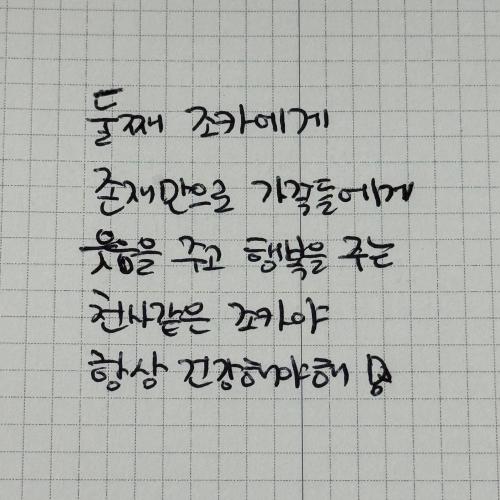 둘째 조카에게
존재만으로 가족들에게
웃음을 주고 행복을 주는
천사같은 조카야
항상 건강해야해